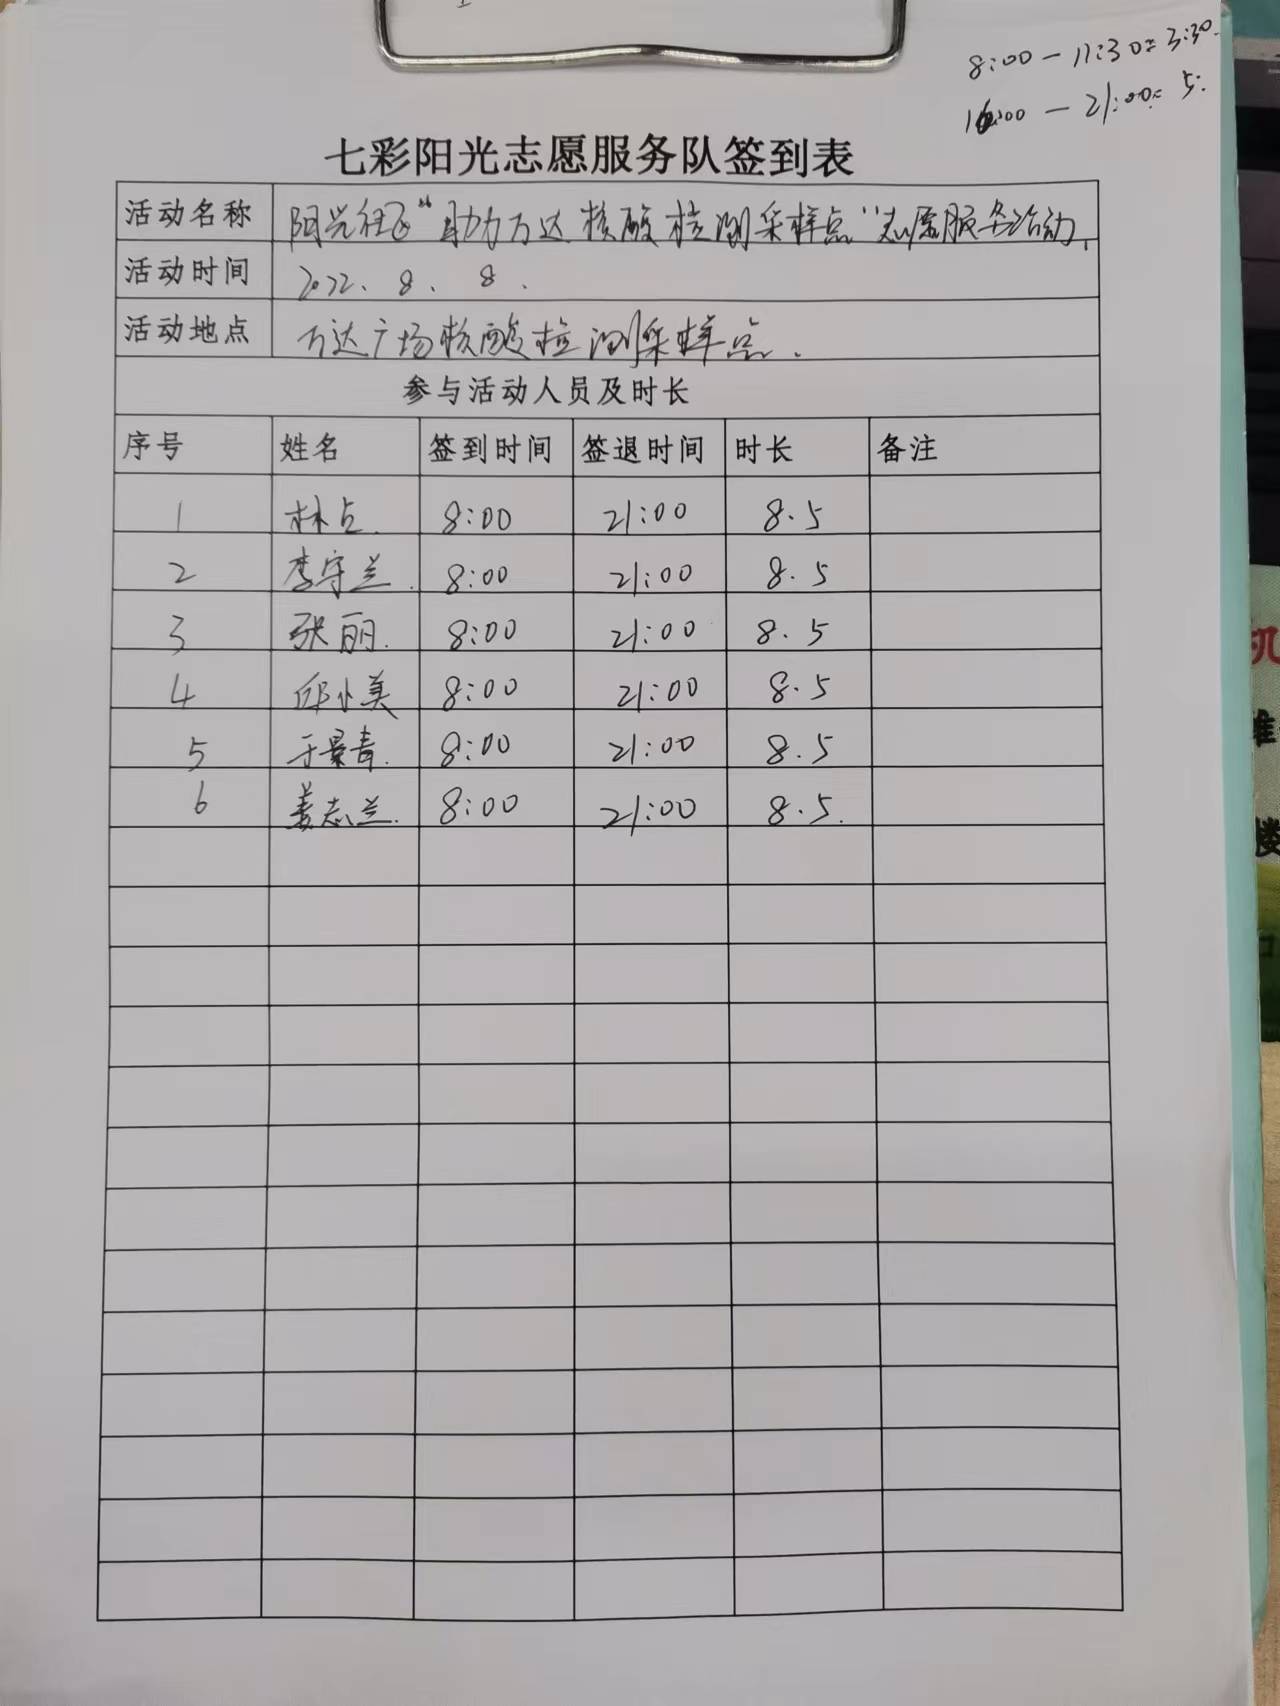 8:00－11:30=3:30.
16:00－21:00=5:
七彩阳光志愿服务队签到表
活动名称 阳光社区“助力万达核酸检测采样点”志愿服务活动
活动时间 2022.8.8.
活动地点 万达广场核酸检测采样点.
参与活动人员及时长
序号 姓名 签到时间 签退时间 时长 备注
1 林点. 8:00 21:00 8.5
2 李守兰. 8:00 21:00 8.5
3 张丽. 8:00 21:00 8.5
4 邱小美 8:00 21:00 8.5
5 于景青. 8:00 21:00 8.5
6 姜志兰. 8:00 21:00 8.5.
机
准
楼